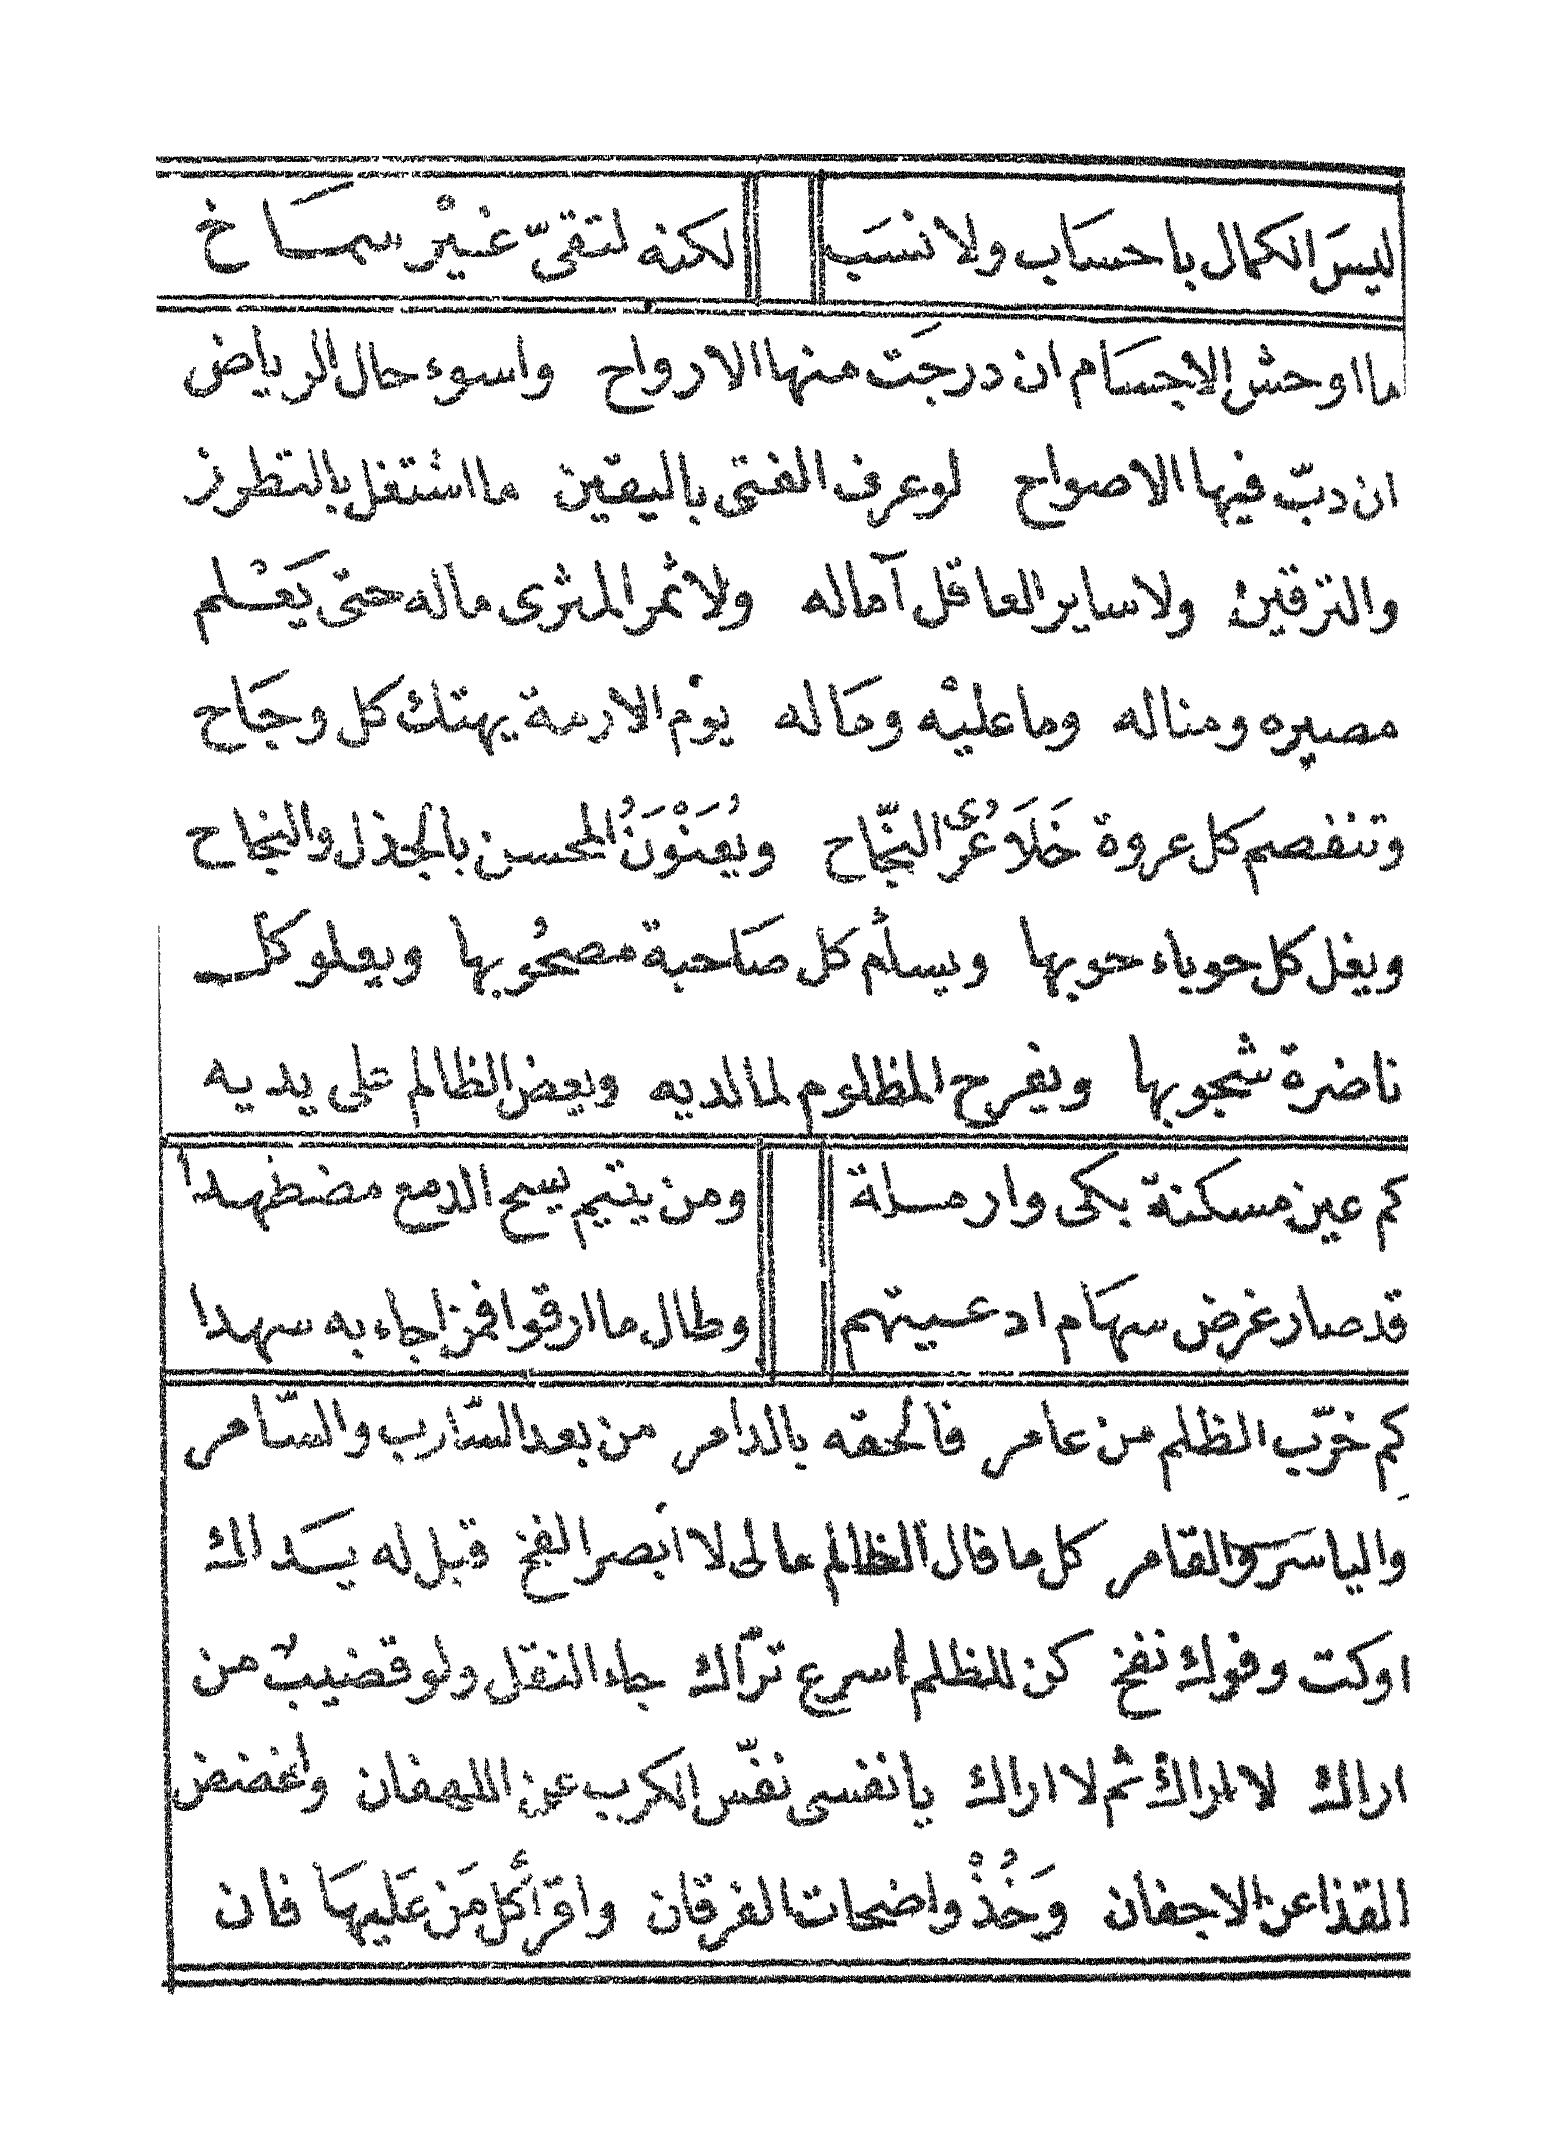 ليسَ الكمال باحساب ولا نسَب لكنه لتقىّ غيْر سمَاخ
ما اوحش الاجسَام ان درجَت منها الارواح واسوء حال الرياض
ان دبّ فيها الاصواح لو عرف الفتى باليقين ما اشتغل بالتطرز
والترقين ولا ساير العاقل آماله ولا ثمر المثرى ماله حتى يَعْلم
مصيره ومناله وما عليْه ومَاله يوْم الازمة يهتك كل وجَاح
وتنفصم كل عروة خَلَا عُرى النّجاح ويُعَنْوَنُ المحسن بالجذل والنجاح
ويغل كل حوباء حوبها ويسلم كل صَاحبة مصحُوبها ويعلو كل
ناضرة شحوبها ويفرح المظلوم لما لديه ويعض الظالم على يديه
كم عين مسكنة بكى وارملة ومن يتيم يسح الدمع مضطهدا
قد صار غرض سهَام ادعيتهم وطال ما ارقوا فمن اجاء به سهدا
كم خرّب الظلم من عامر فالحقه بالدامر من بعد السّارب والسّامر
والياسَر والقامر كل ما قال الظالم مالى لا ابصر الفخ قبل له يسَداك
اوكت وفوك نفخ كن للظلم اسرع ترّاك جاء النقل ولو قضيبٌ من
اراك لا اراك ثم لا اراك يا نفسى نفّس الكرب عن اللهفان واغضض
القذا عن الاجفان وَخُذْ واضحات الفرقان واقرأ كل مَن عَليهَا فان